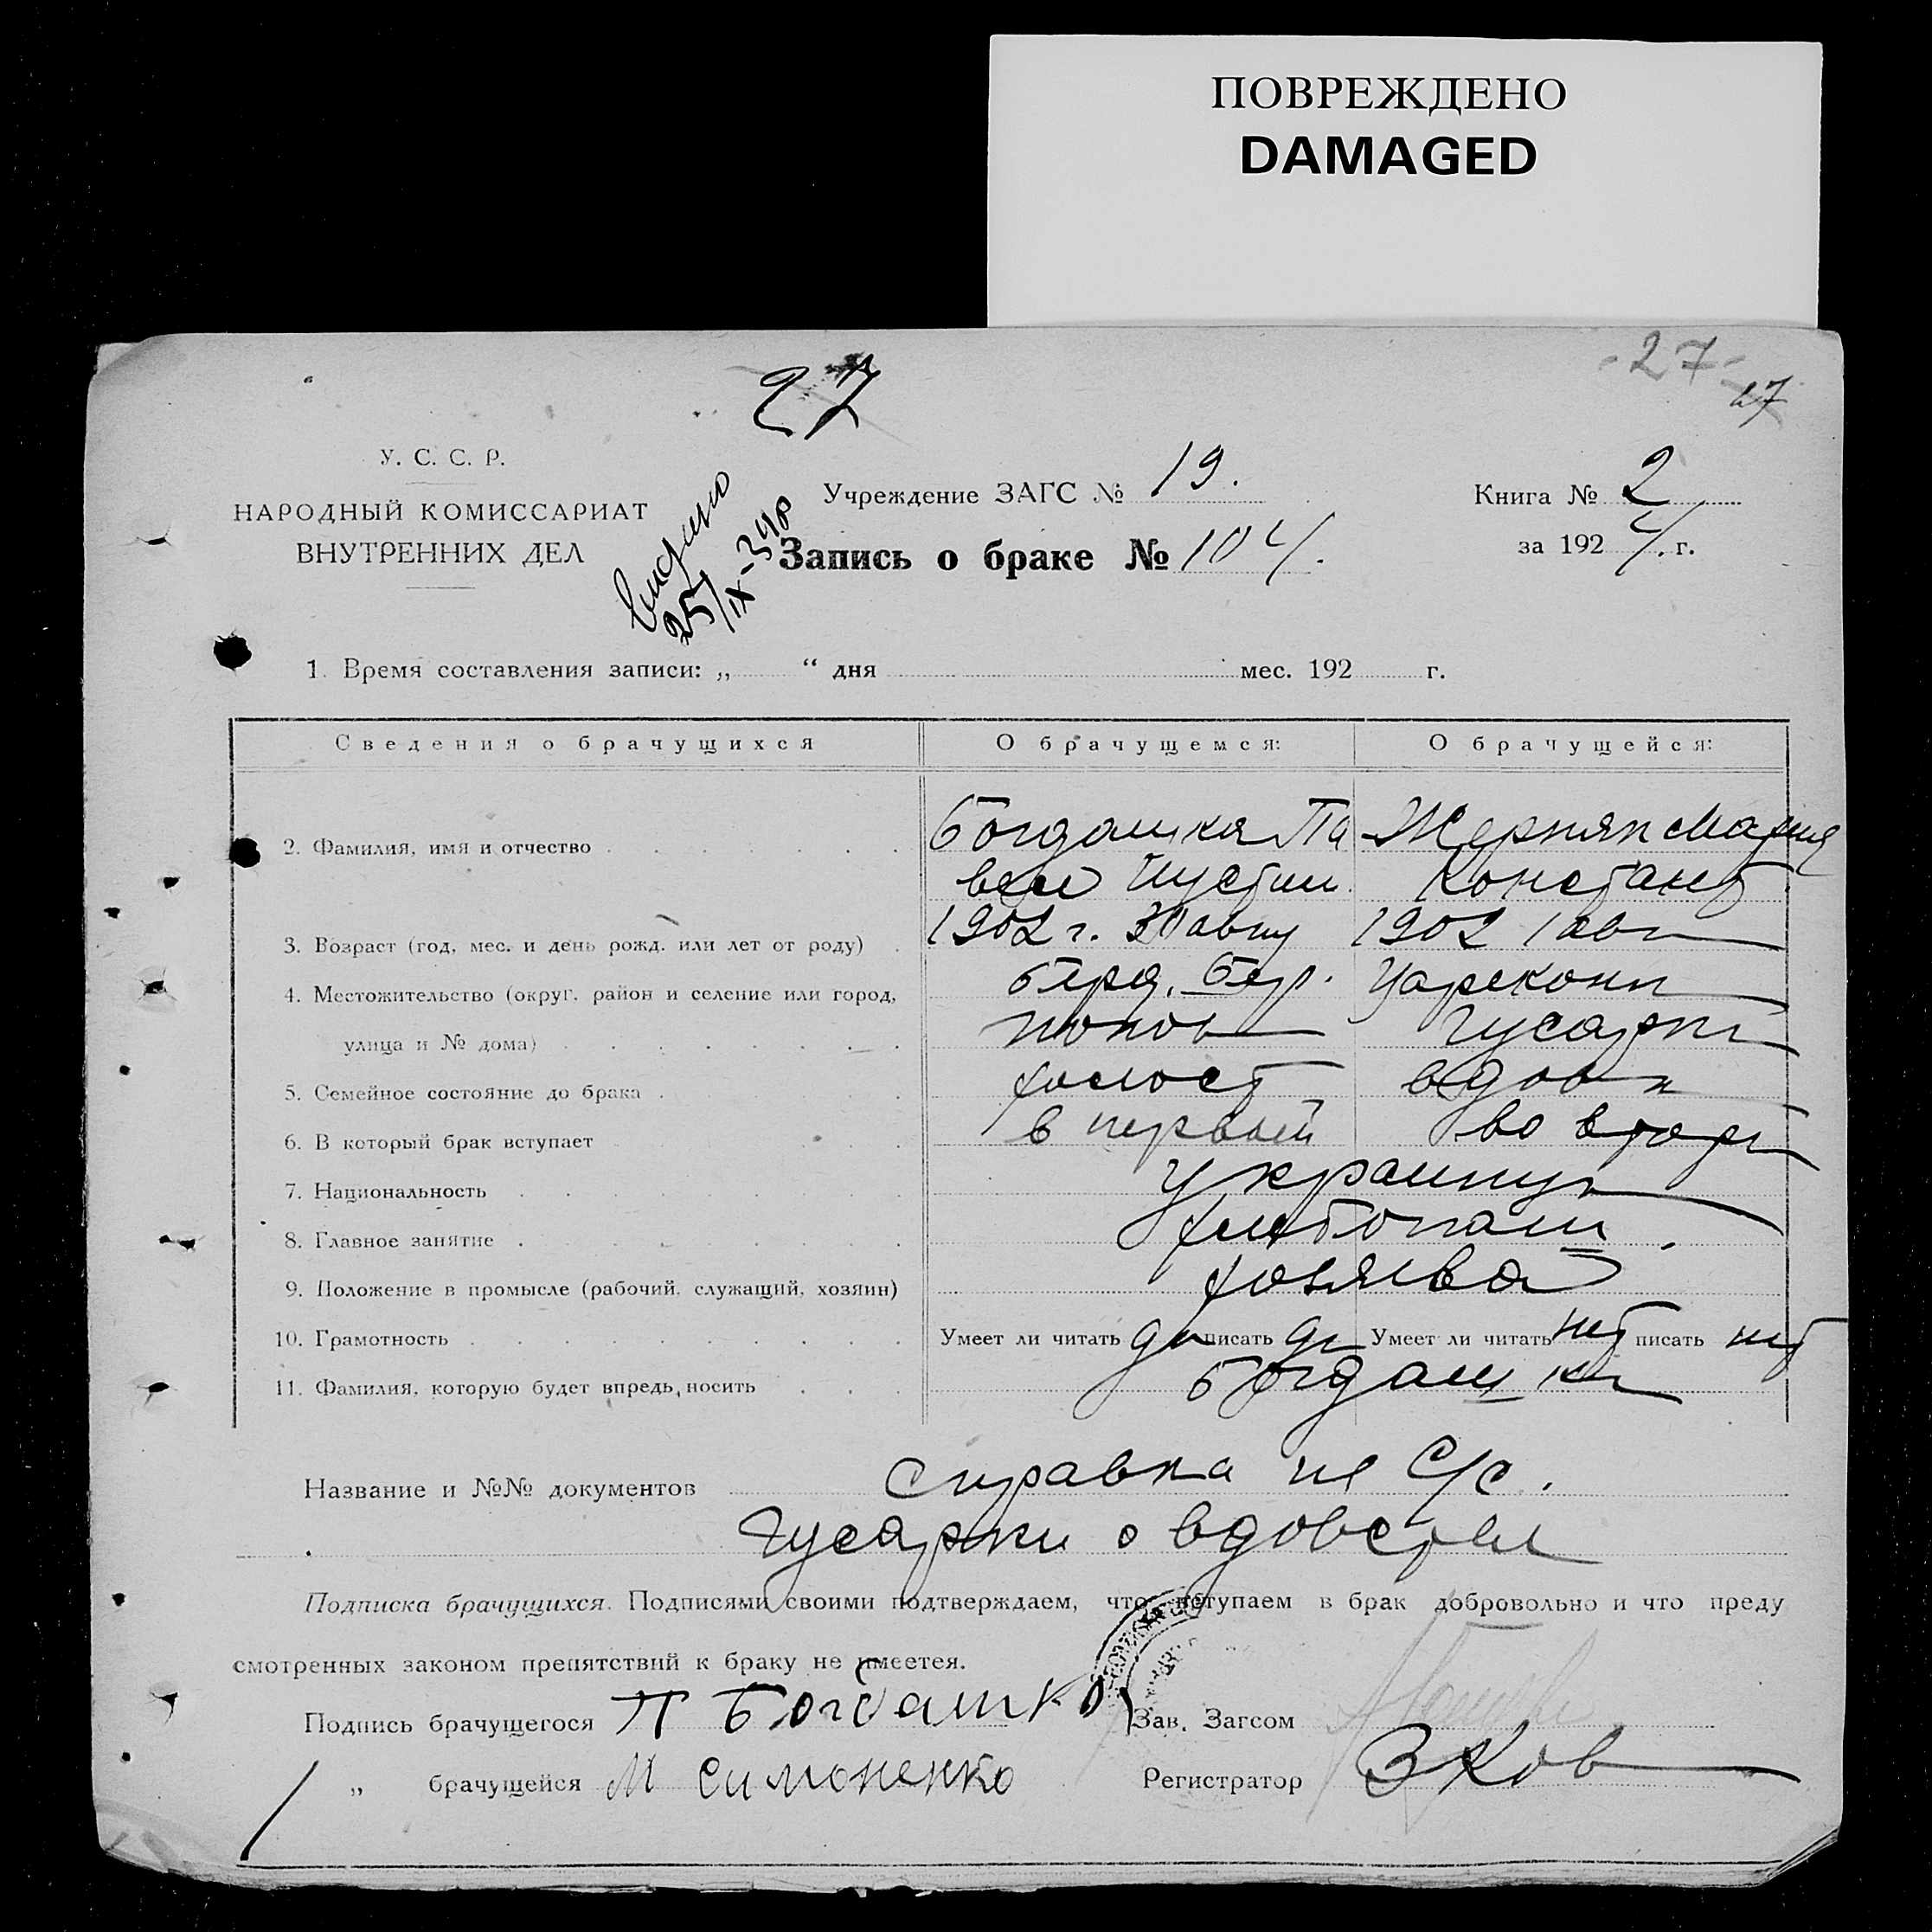 ПОВРЕЖДЕНО
DAMAGED
27
- 27 -
27
У. С. С. Р.
НАРОДНЫЙ КОМИССАРИАТ
ВНУТРЕННИХ ДЕЛ
25/IX-34
Учреждение ЗАГС № 19.
Книга № 2
Запись о браке № 104.
за 1924. г.
1. Время составления записи: „ “ дня мес. 192 г.
Сведения о брачущихся О брачущемся: О брачущейся:
2. Фамилия, имя и отчество Богдашка Па Мария
вел Иустин. Констант.
3. Возраст (год, мес. и день рожд. или лет от роду) 1902 г. 30 авгу 1902 1 авг
4. Местожительство (округ, район и селение или город, Берд. Бер. Царекон
улица и № дома) попов Гусарк
5. Семейное состояние до брака холост вдова
6. В который брак вступает в первый во втор
7. Национальность украинц
8. Главное занятие хлебопаш.
9. Положение в промысле (рабочий, служащий, хозяин) хозяева
10. Грамотность Умеет ли читать да писать да Умеет ли читать нет писать нет
11. Фамилия, которую будет впредь носить Богдашка
Название и №№ документов Справка С/с.
Гусарки о вдовстве
Подписка брачущихся. Подписями своими подтверждаем, что вступаем в брак добровольно и что преду
смотренных законом препятствий к браку не имеется.
Подпись брачущегося П Богдашка Зав. Загсом
„ брачущейся М Симоненко Регистратор